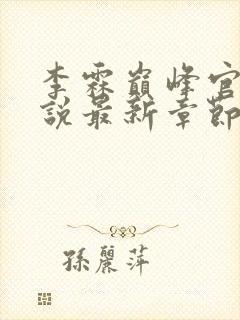 李霖巔峰官
說最新章節
孫麗萍